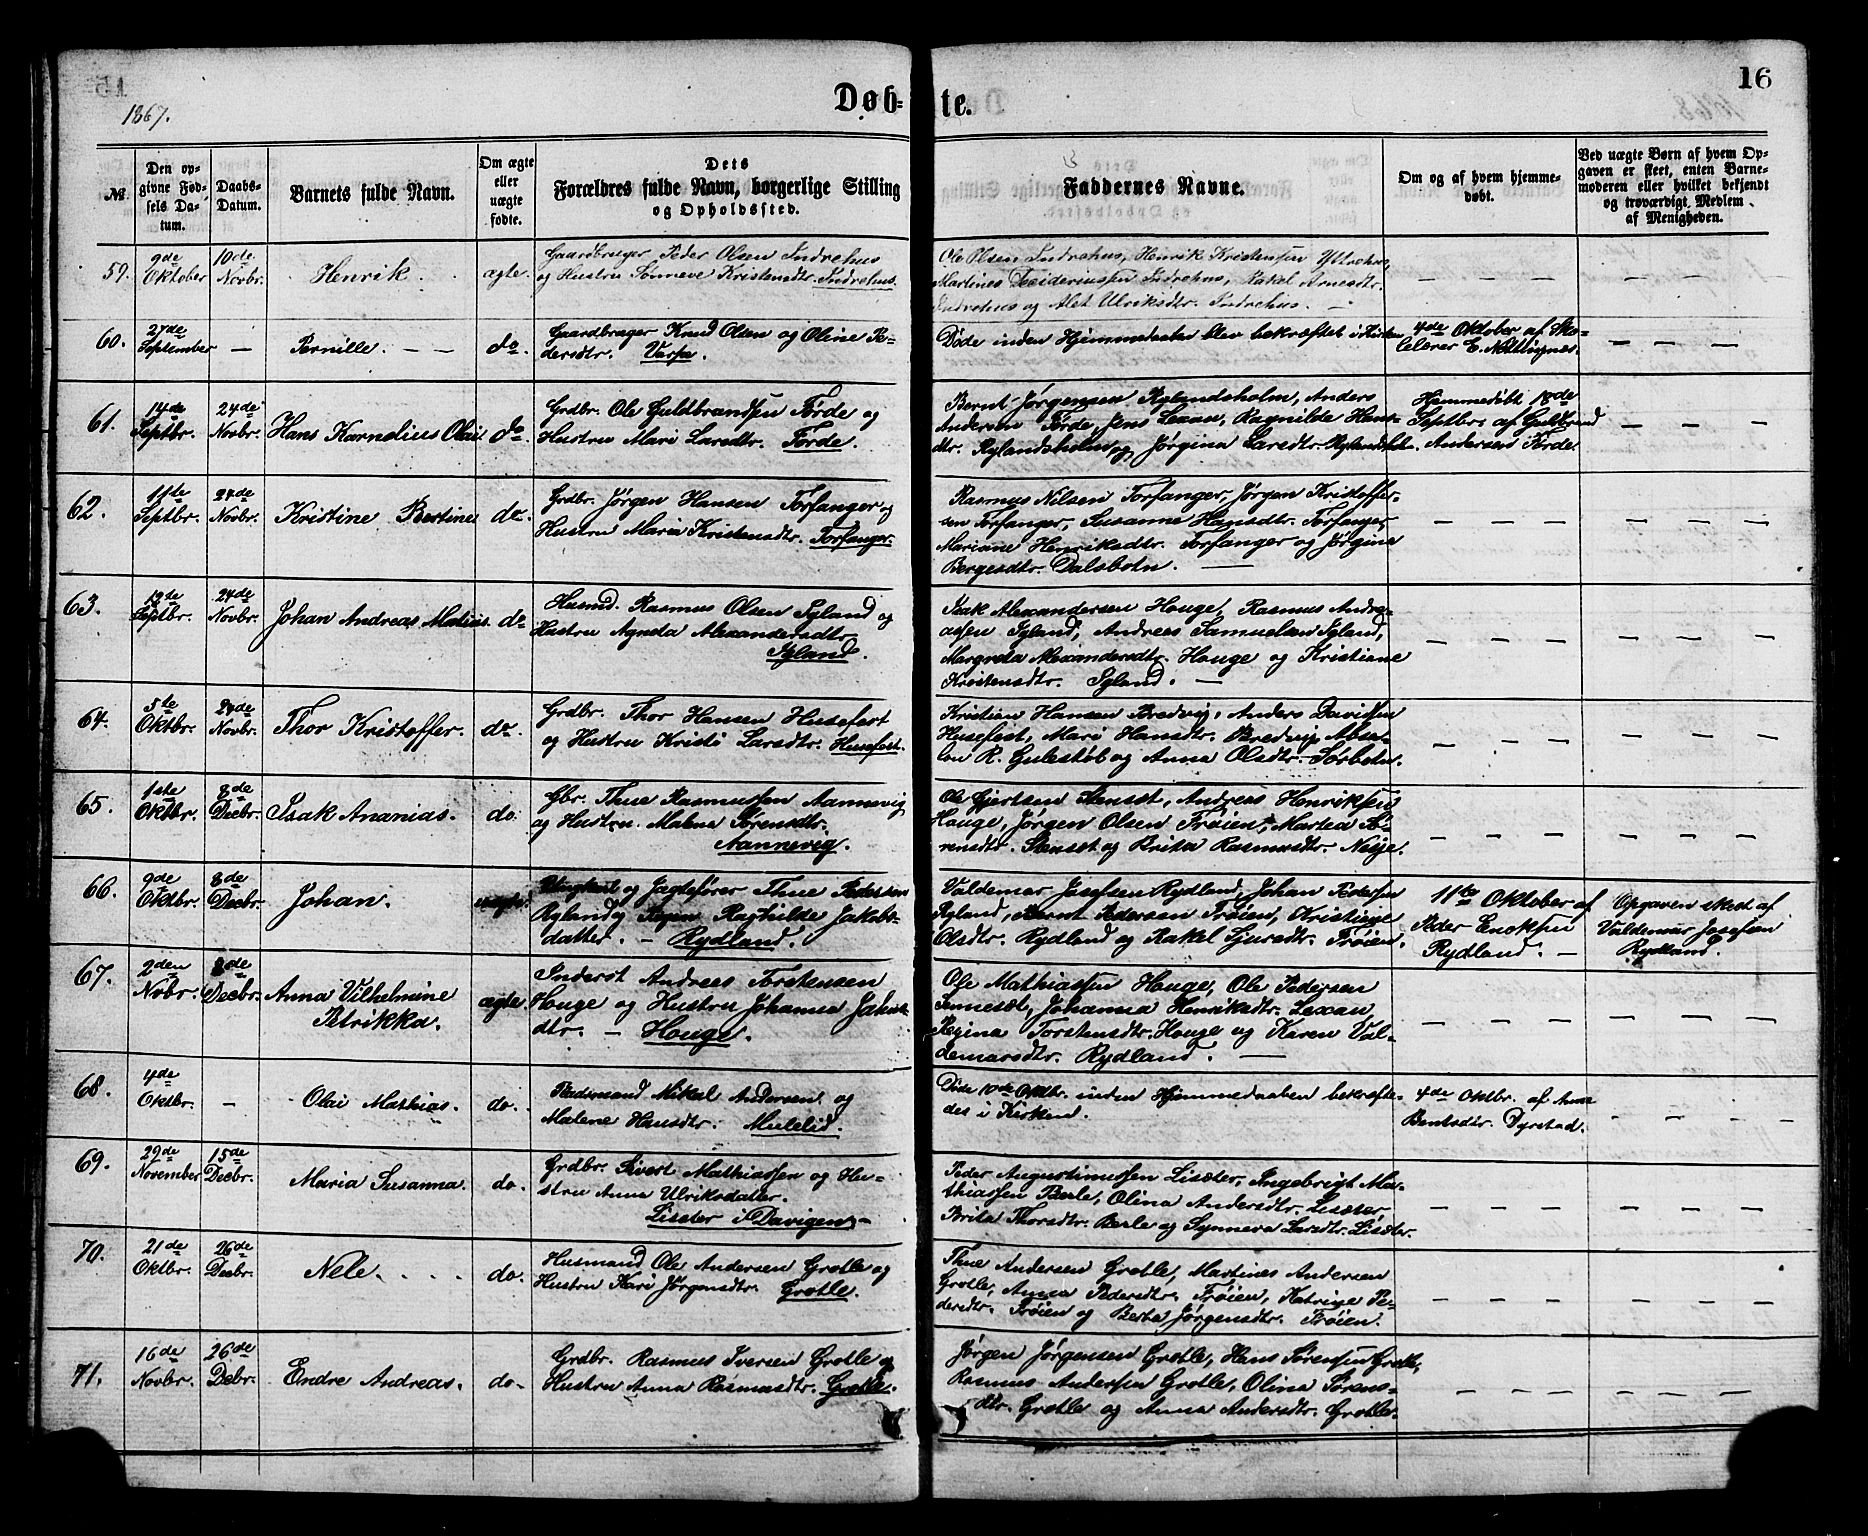 1867.
Døb-
te.
16
№
Den op-
givne Fød-
sels Da-
tum.
Daabs-
Datum.
Barnets fulde Navn.
Om ægte
eller
uægte
fødte.
Dets
Forældres fulde Navn, borgerlige Stilling
og Opholdssted.
Faddernes Navne.
Om og af hvem hjemme-
døbt.
Ved uægte Børn af hvem Op-
gaven er skeet, enten Barne-
moderen eller hvilket bekjendt
og troværdigt Medlem
af Menigheden.
59.
9de
Oktober
10de
Novbr.
Henrik.
ægte.
Gaardbruger Peder Olsen Indrehus
og Hustru Sønneve Kristensdtr. Indrehus.
Ole Olsen Indrehus, Henrik Kristensen Yttrehus,
Martines Desideriussen Indrehus, Rakel Arnesdtr.
Indrehus og Alet Ulriksdtr. Indrehus. —
60.
27de
September
—
Pernille. — —
do.
Gaardbruger Knud Olsen og Oline Pe-
dersdtr. Varpe.
Døde inden Hjemmedaaben blev bekræftet i Kirken
4de Oktober af Sko-
lelærer E. Nøttingnes.
61.
14de
Septbr.
24de
Novbr.
Hans Kornelius Olai
do.
Grdbr. Ole Guldbrandsen Förde og
Hustru Mari Larsdtr. Förde.
Bernt Jørgensen Rylandsholm, Anders
Andersen Förde, Jens Lexau, Ragnilde Hans-
dtr. Rylandsholm og Jørgina Larsdtr. Rylandshol.
Hjemmedöbt 18de
Septbr. af Guldbrand
Andersen Förde.
62.
11te
Septbr.
24de
Novbr.
Kristine Bertine
do.
Grdbr. Jørgen Hansen Torfanger og
Hustru Maria Kristensdtr. Torfanger.
Rasmus Nilsen Torfanger, Jørgen Kristoffer-
sen Torfanger, Susanne Hansdtr. Torfanger,
Mariane Henriksdtr. Torfanger og Jørgine
Børgesdtr. Dalsbotn. —
63.
12te
Septbr.
24de
Novbr.
Johan Andreas Matius.
do.
Husmd. Rasmus Olsen Igland og
Hustru Agneta Alexandersdtr.
Igland.
Isak Alexandersen Houge, Rasmus Andre-
assen Igland, Andreas Samuelsen Igland,
Margreta Alexandersdtr. Houge og Kristiane
Kristensdtr. Igland. —
64.
5te
Oktbr.
24de
Novbr.
Thor Kristoffer.
do.
Grdbr. Thor Hansen Husefest
og Hustru Kristi Larsdtr. Husefest.
Kristian Hansen Bredvig, Anders Davidsen
Husefest, Mari Hansdtr. Bredvig, Absa-
lon R. Gulestøb og Anna Olsdtr. Sørbotn.
65.
1ste
Oktbr.
8de
Decbr.
Isak Ananias.
do.
Gbr. Thue Rasmussen Aannevig
og Hustru. Malena Sørensdtr.
Aannevig.
Ole Gjertsen Stensæt, Andreas Henriksen
Houge, Jørgen Olsen Frøien, Martea Sö-
rensdtr. Stensæt og Brita Rasmusdtr. Nesje.
66.
9de
Oktbr.
8de
Decbr.
Johan.
uægte.
Ungkarl og Jagtefører Thue Pedersen
Ryland og Pigen Raghilde Jakobs-
datter. — Rydland.
Valdemar Josefsen Rydland, Johan Pedersen
Ryland, Bernt Pedersen Frøien, Kristine
Olsdtr. Rydland og Rakel Sjursdtr. Frøien.
11te Oktober af
Peder Enoksen
Rydland. —
Opgaven skeet af
Valdemar Josefsen
Rydland.
67.
2den
Novbr.
8de
Decbr.
Anna Vilhelmine
Petrikka.
ægte.
Inderst Andreas Torstensen
Houge og Hustru Johanna Jahns-
dtr. — Houge.
Ole Mathiassen Houge, Ole Pedersen
Sennesæt, Johanna Henriksdtr. Lexau,
Regina Torstensdtr. Houge og Karen Val-
demarsdtr. Rydland. —
68.
4de
Oktbr.
—
Olai Mathias.
do.
Pladsmand Mikal Andersen og
Malene Hansdtr. Mulelid.
Døde 10de Oktbr. inden Hjemmedaaben bekræfte-
des i Kirken.
4de Oktbr. af Anna
Berntsdtr. Dyrstad.
69.
29de
November
15de
Decbr.
Maria Susanna.
do.
Grdbr. Sivert Mathiassen og Hu-
stru Anna Ulriksdatter.
Lisæter i Davigen. —
Peder Augustinussen Lisæter, Ingebrigt Ma-
thiassen Berle, Olina Andersdtr. Lisæter,
Brita Thorsdtr. Berle og Synneva Larsdtr. Lisæter.
70.
21de
Oktbr.
26de
Decbr.
Nele. . . . .
do.
Husmand Ole Andersen Grotle og
Hustru Kari Jørgensdtr. Grotle.
Thue Andersen Grotle, Martines Andersen
Grotle, Anna Pedersdtr. Frøien, Katrine Pe-
dersdtr. Frøien og Berta Jørgensdtr. Frøien.
71.
16de
Novbr.
26de
Debr.
Endre Andreas.
do.
Grdbr. Rasmus Iversen Grotle og
Hustru Anna Rasmusdtr. Grotle.
Jørgen Jørgensen Grotle, Hans Sørensen Grotle,
Rasmus Andersen Grotle, Olina Sørens-
dtr. Grotle og Anna Andersdtr. Grotle.